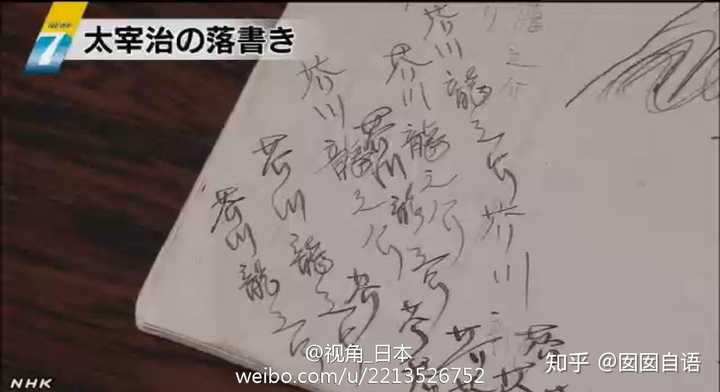 NEWS
7
太宰治の落書き
龍之介
芥川龍之介
芥川
芥川龍之介
芥川龍之介
芥川龍之介
芥川龍之介
芥川龍之介
NHK
@视角_日本
weibo.com/u/2213526752
知乎 @囡囡自语